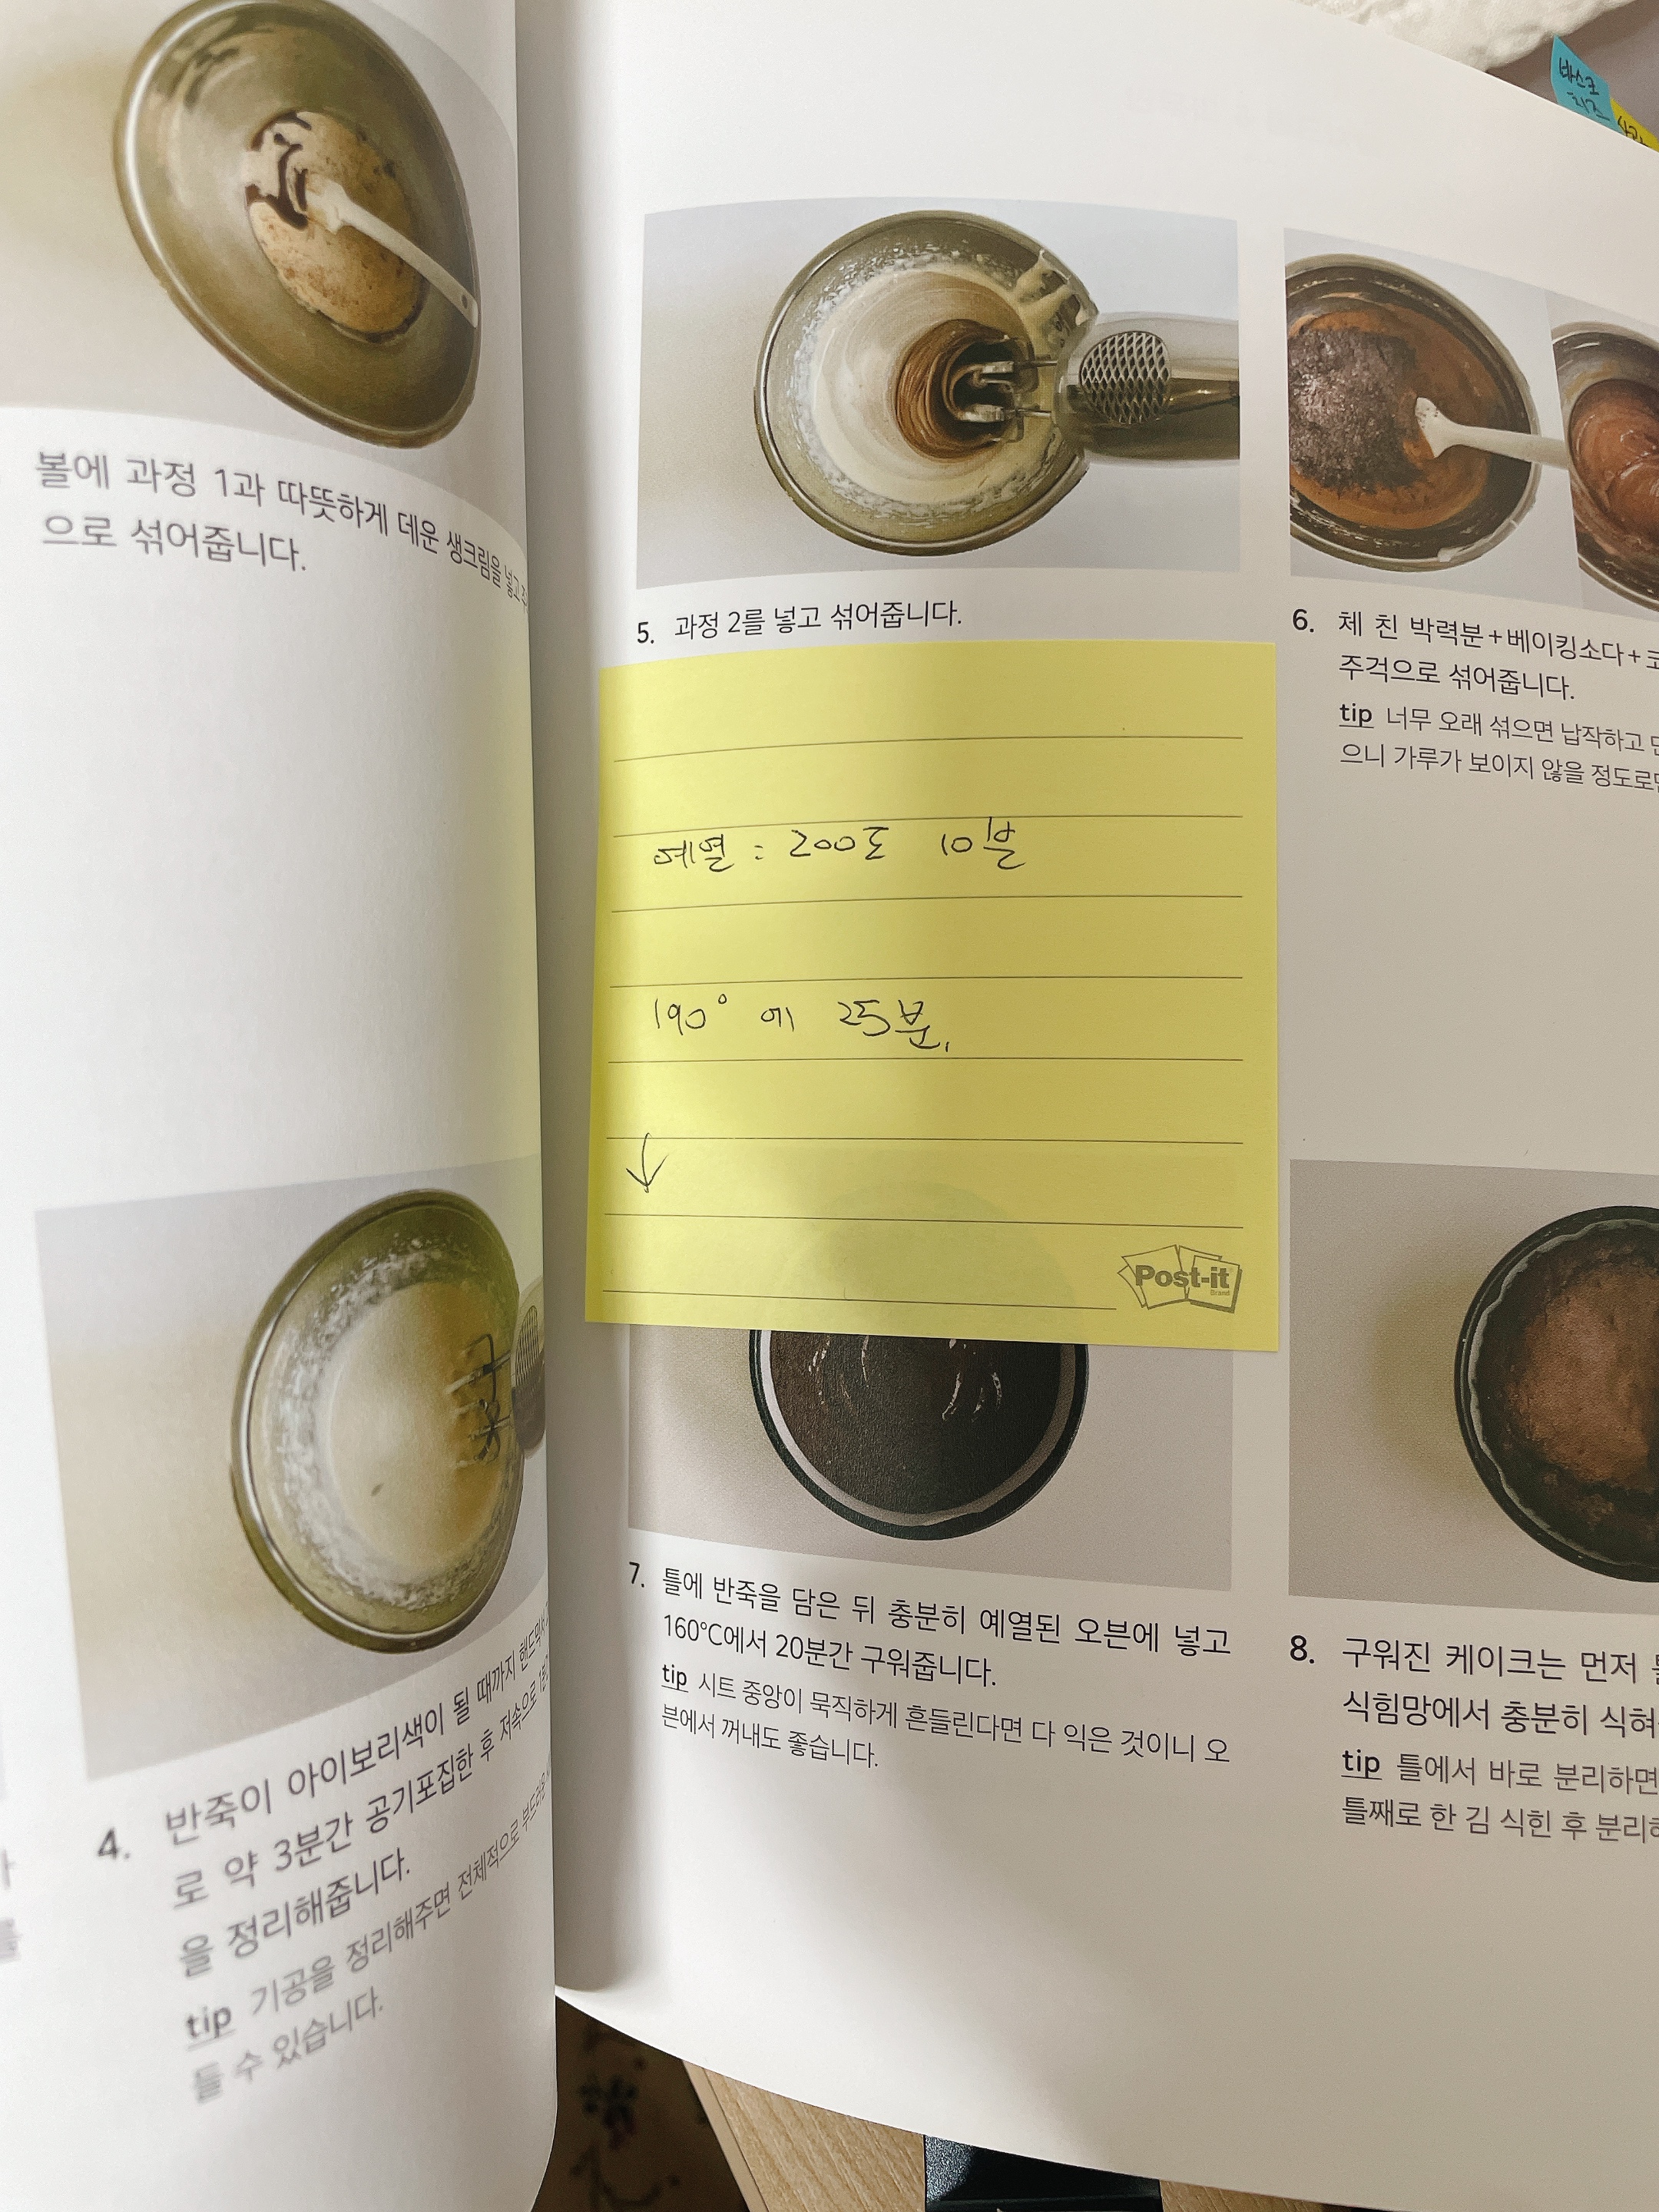 볼에 과정 1과 따뜻하게 데운 생크림을 넣고
으로 섞어줍니다.
4. 반죽이 아이보리색이 될 때까지 핸드믹서
로 약 3분간 공기포집한 후 저속으로 1분간
을 정리해줍니다.
tip 기공을 정리해주면 전체적으로 부드러운
들 수 있습니다.
바스크
치즈
5. 과정 2를 넣고 섞어줍니다.
예열 : 200도 10분
190° 에 25분.
↓
Post-it
Brand
7. 틀에 반죽을 담은 뒤 충분히 예열된 오븐에 넣고
160℃에서 20분간 구워줍니다.
tip 시트 중앙이 묵직하게 흔들린다면 다 익은 것이니 오
븐에서 꺼내도 좋습니다.
6. 체 친 박력분+베이킹소다+코
주걱으로 섞어줍니다.
tip 너무 오래 섞으면 납작하고
으니 가루가 보이지 않을 정도로만
8. 구워진 케이크는 먼저
식힘망에서 충분히 식혀
tip 틀에서 바로 분리하면
틀째로 한 김 식힌 후 분리하